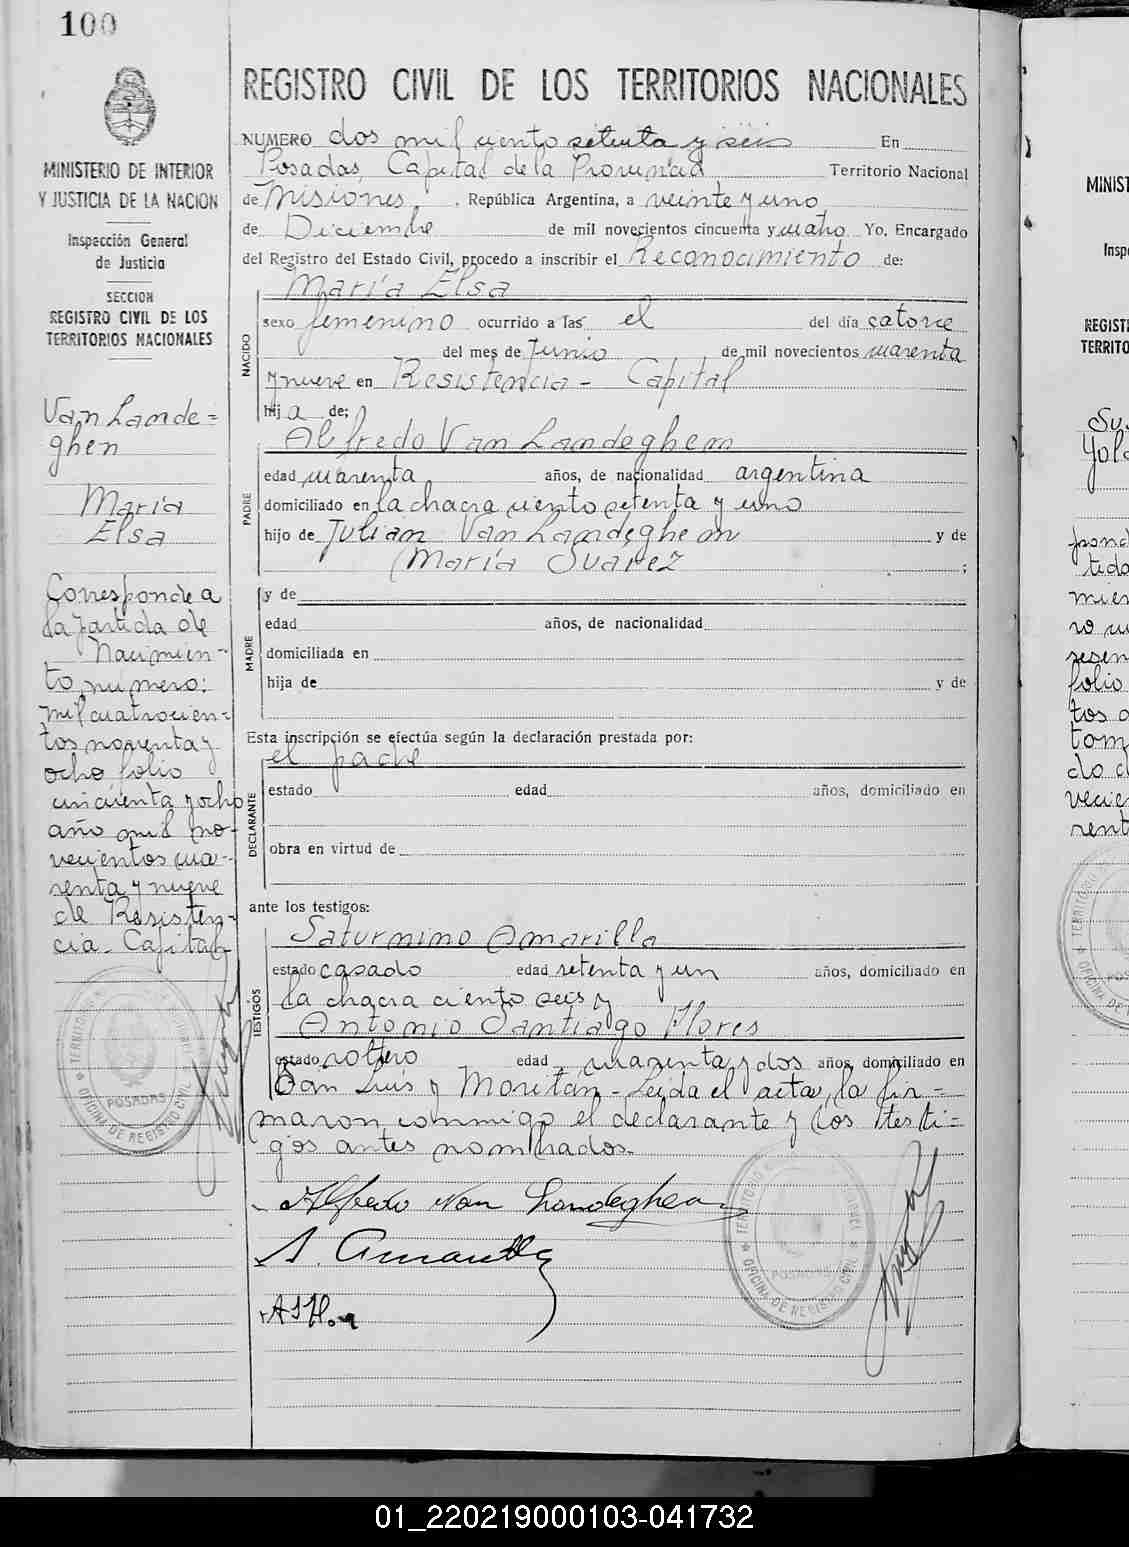 100
MINISTERIO DE INTERIOR
Y JUSTICIA DE LA NACION
Inspección General
de Justicia
SECCION
REGISTRO CIVIL DE LOS
TERRITORIOS NACIONALES
Van Lande=
ghen
María
Elsa
Corresponde a
la partida de
Nacimien-
to numero:
mil cuatrocien=
tos noventa y
ocho folio
cincuenta y ocho
año mil no-
vecientos cua-
renta y nueve
de Resisten-
cia. Capital
REGISTRO CIVIL DE LOS TERRITORIOS NACIONALES
NUMERO dos mil ciento setenta y seis En
Posadas, Capital de la Provincia Territorio Nacional
de Misiones. , República Argentina, a veinte y uno
de Diciembre de mil novecientos cincuenta y cuatro Yo, Encargado
del Registro del Estado Civil, procedo a inscribir el Reconocimiento de:
María Elsa
NACIDO
sexo femenino ocurrido a las el del día catorce
del mes de Junio de mil novecientos cuarenta
y nueve en Resistencia - Capital
hij a de;
Alfredo Van Landeghem
PADRE
edad cuarenta años, de nacionalidad argentina
domiciliado en la chacra ciento setenta y uno
hijo de Julian Van Landeghem y de
María Suárez ;
MADRE
y de
edad años, de nacionalidad
domiciliada en
hija de y de
Esta inscripción se efectúa según la declaración prestada por:
el padre
DECLARANTE
estado edad años, domiciliado en
obra en virtud de
ante los testigos:
Saturnino Amarilla
TESTIGOS
estado casado edad setenta y un años, domiciliado en
la chacra ciento seis y
Antonio Santiago Flores
estado soltero edad cuarenta y dos años, domiciliado en
San Luis y Moritán - Leída el acta, la fir=
maron conmigo el declarante y los testi=
gos antes nombrados.
Alfredo Van Landeghem
S. Amarilla
TERRITORIO
OFICINA DE REGISTRO CIVIL
POSADAS
TERRITORIO
OFICINA DE REGISTRO CIVIL
POSADAS
MINIST
Insp
REGIST
TERRITO
Yola
tida
mien
folio
tos
tom
do
vecien
rent
TERRITORIO
OFICINA DE
POS
01_220219000103-041732